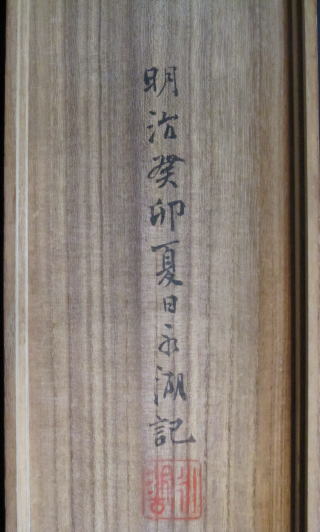 明治癸卯夏日永湖記